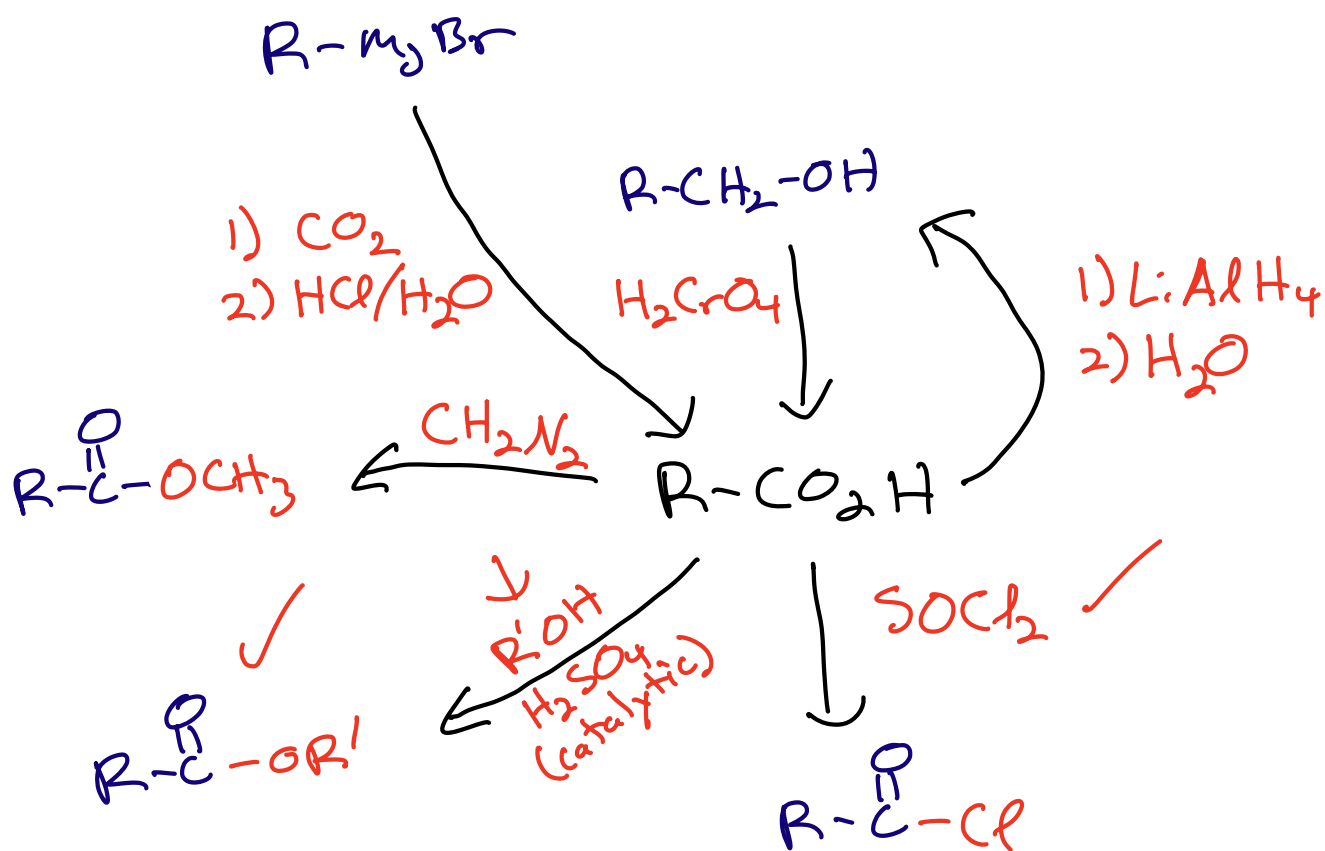 R-MgBr
R-CH₂-OH
1) CO₂
2) HCl/H₂O
H₂CrO₄
1) LiAlH₄
2) H₂O
O
R-C-OCH₃
CH₂N₂
R-CO₂H
R'OH
H₂SO₄
(catalytic)
SOCl₂
O
R-C-OR'
O
R-C-Cl